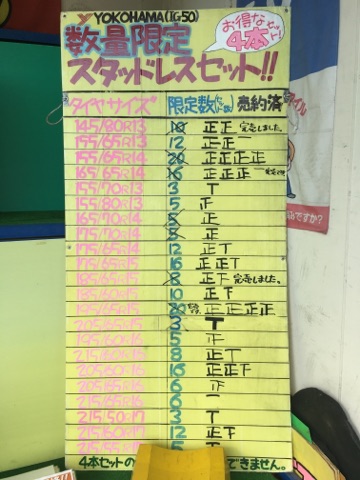 YOKOHAMA (IG50)
お得なセット!
4本
数量限定
スタッドレスセット!!
タイヤサイズ 限定数 売約済
145/80R13 10 正正 完売しました。
155/65R13 12 正正一
155/65R14 20 正正正正
165/65R14 16 正正正一
155/70R13 3 T
155/80R13 5 正
165/70R14 5 正
175/70R14 5 正
175/65R14 12 正T
175/65R15 16 正正T
185/65R15 8 正下 完売しました。
185/60R15 10 正下
195/65R15 20 正正正正
205/65R15 3 T
195/60R16 5 正
215/60R16 8 正T
205/60R16 16 正正下
205/55R16 6 正
215/65R16 6 一
215/50R17 3 T
215/60R17 12 正下
215/55R17 5
4本セットの できません。